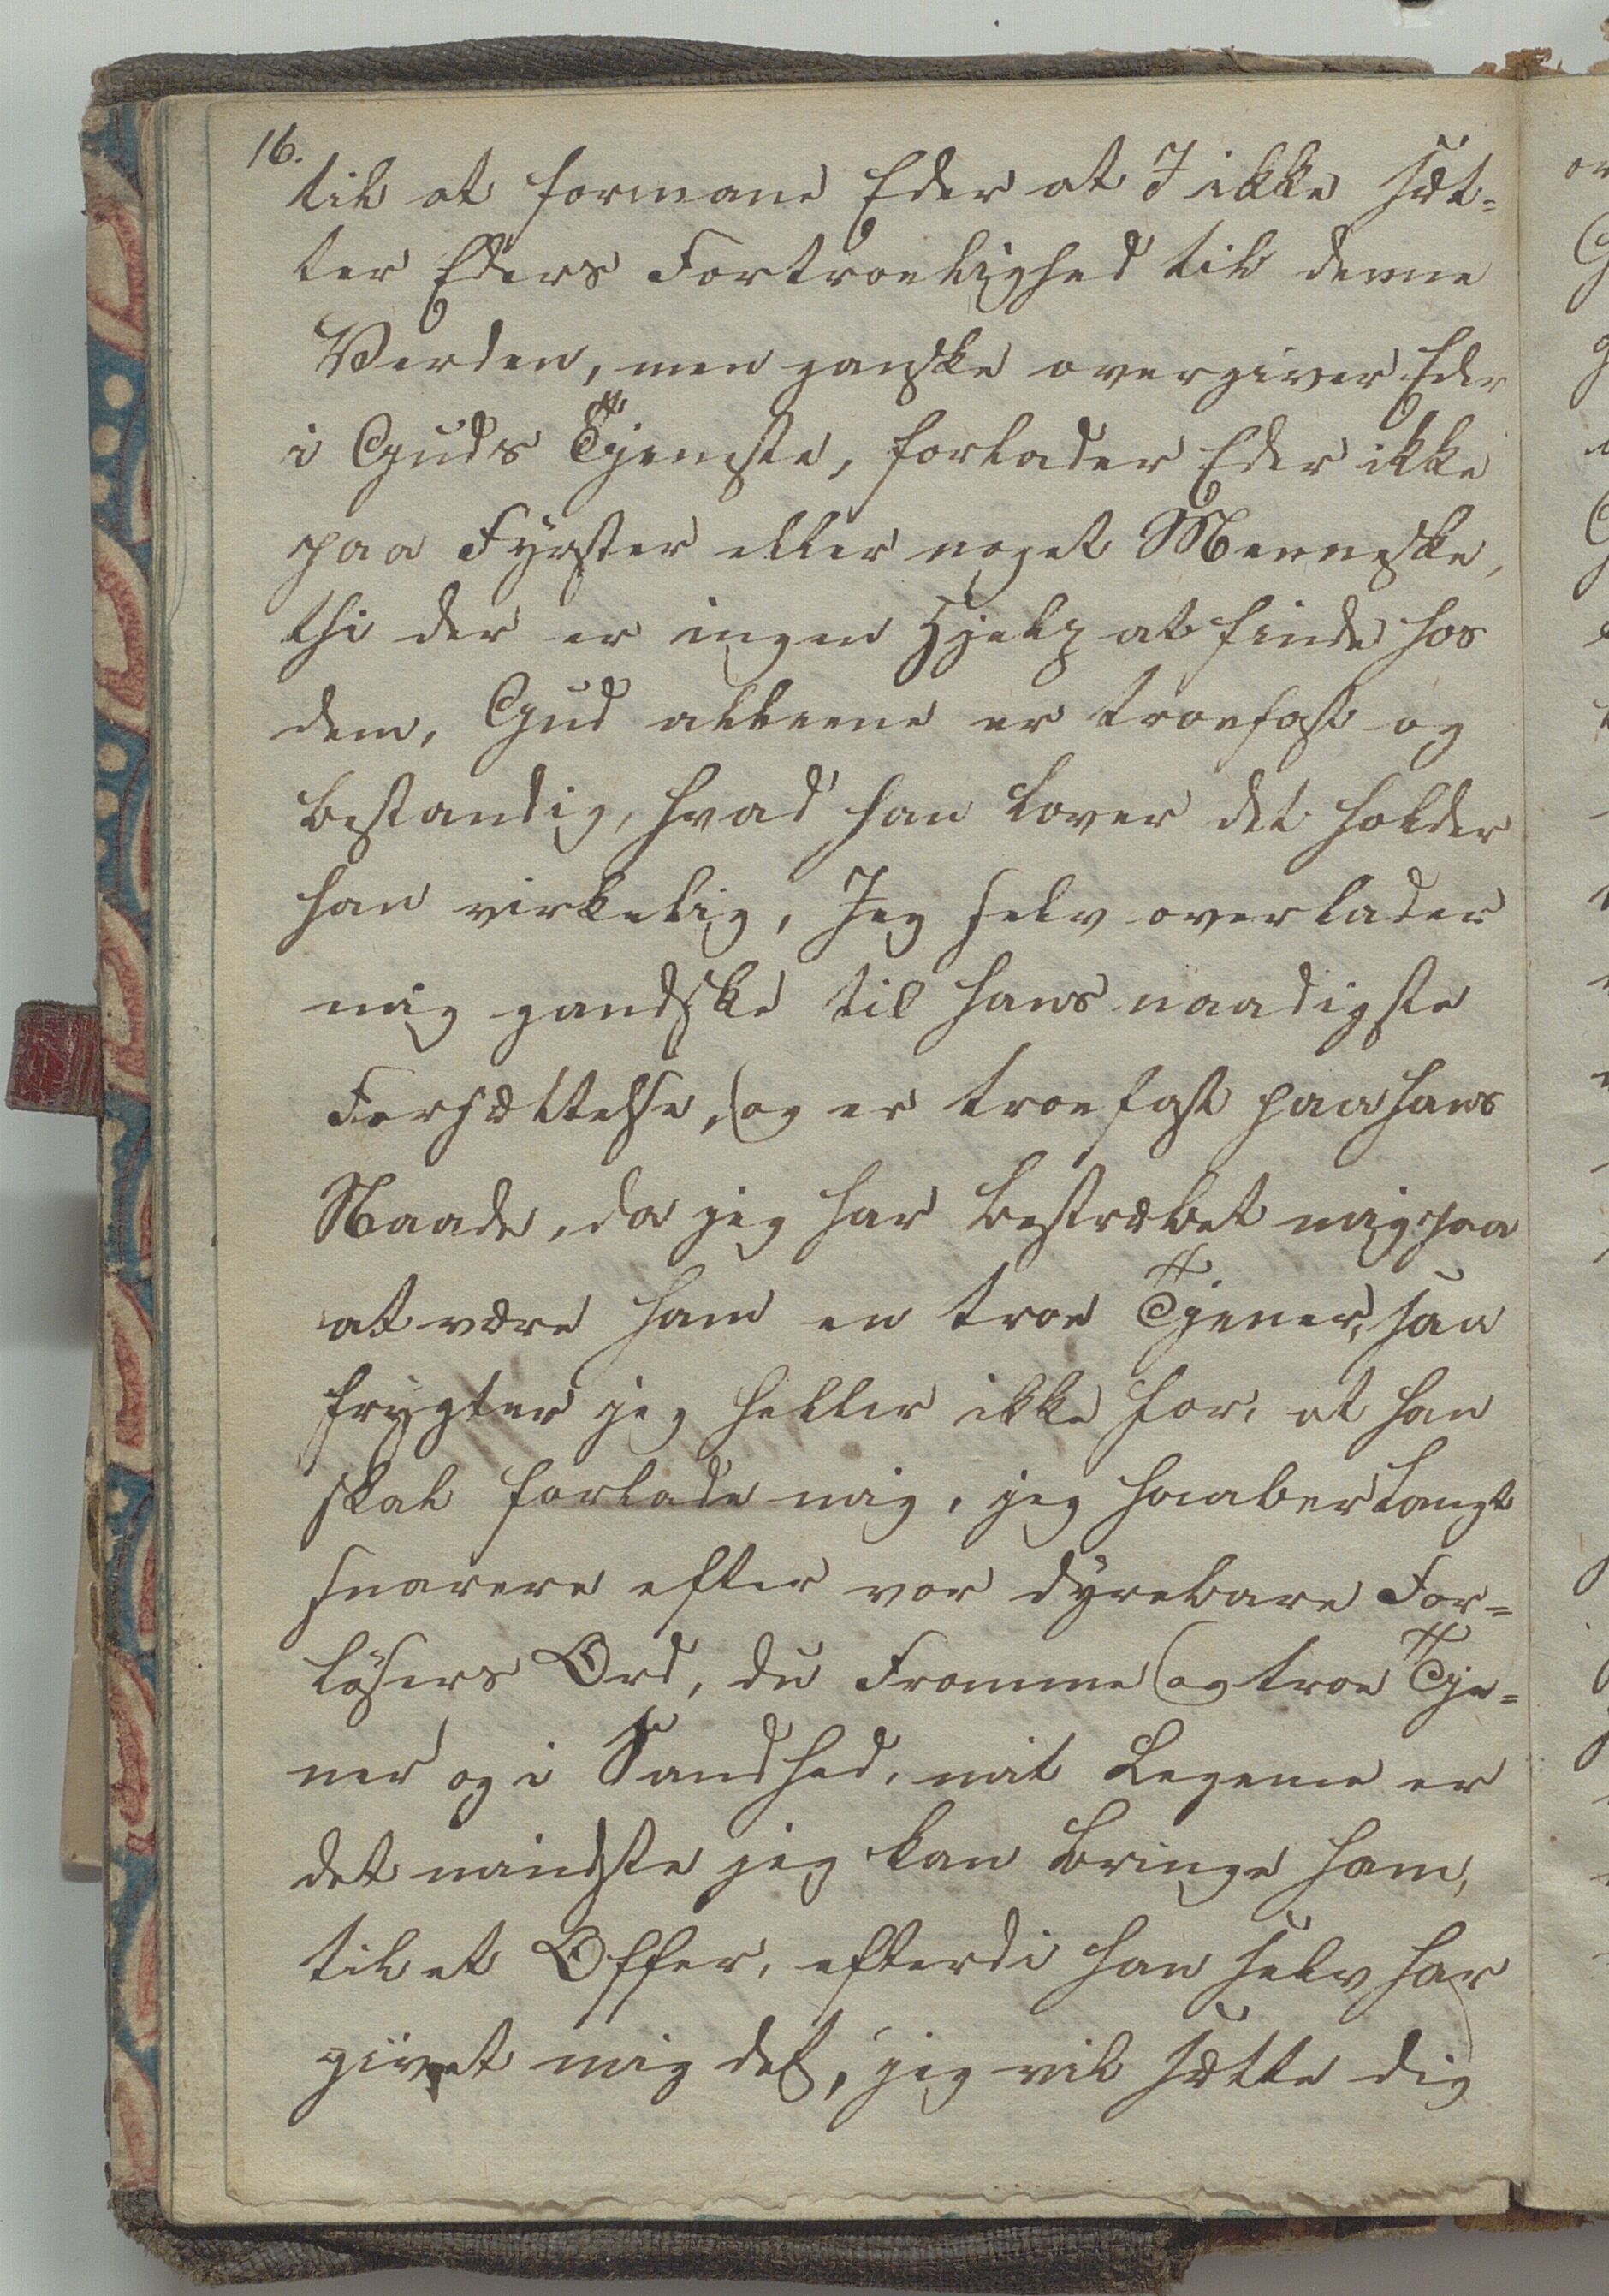 16.
til at formane Eder at I ikke sæt=
ter Eders Fortroelighed til denne
Verden, men ganske overgiver Eder
i Guds Tjeneste, forlader Eder ikke
paa Fyrster eller noget Menneske,
thi der er ingen Hjelp at finde hos
dem, Gud alleene er troefast og
bestandig, hvad han lover det holder
han virkelig, Jeg selv overlader
mig gandske til hans naadigste
Forsættelse, og er troefast paa hans
Naade, da jeg har bestræbet mig paa
at være ham en troe Tjener, saa
frygter jeg heller ikke for, at han
skal forlade mig, jeg haaber langt
snarere efter vor dyrebare For=
løsers Ord, du Fromme og troe Tje=
ner og i Sandhed, mit Legeme er
det mindste jeg kan bringe ham,
til et Offer, efterdi han selv har
givet mig det, jeg vil sætte dig